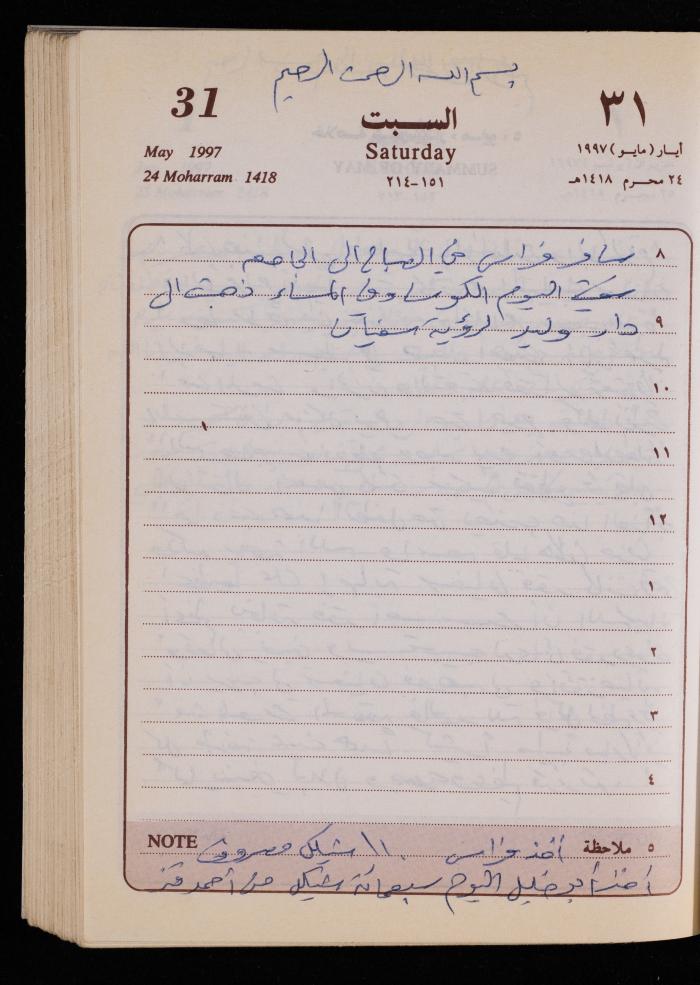 بسم الله الرحمن الرحيم
31
السبت
٣١
May 1997
Saturday
أيار (مايو) ١٩٩٧
24 Moharram 1418
١٥١-٢١٤
٢٤ محرم ١٤١٨هـ
٨
سافر فراس في الصباح الى الجامعه
اليوم الكوسا وفي المساء ذهبت الى
٩
دار وليد لرؤية سفيان
١٠
١١
١٢
١
٢
٣
٤
NOTE
٥ ملاحظة
أخذ فراس ١١٠ شيكل مصروف
أخذ أبو خليل اليوم سبعمائة شيكل من أحمد